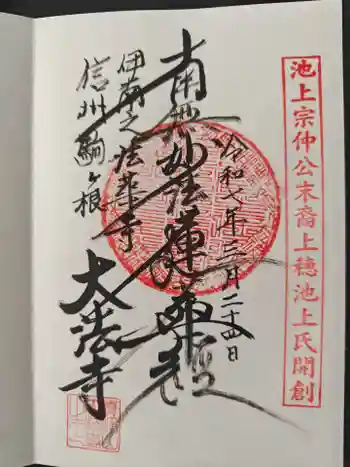 池上宗仲公末裔上穂池上氏開創
令和七年三月二十四日
南無妙法蓮華経
伊南之法華寺
信州駒ヶ根
大法寺